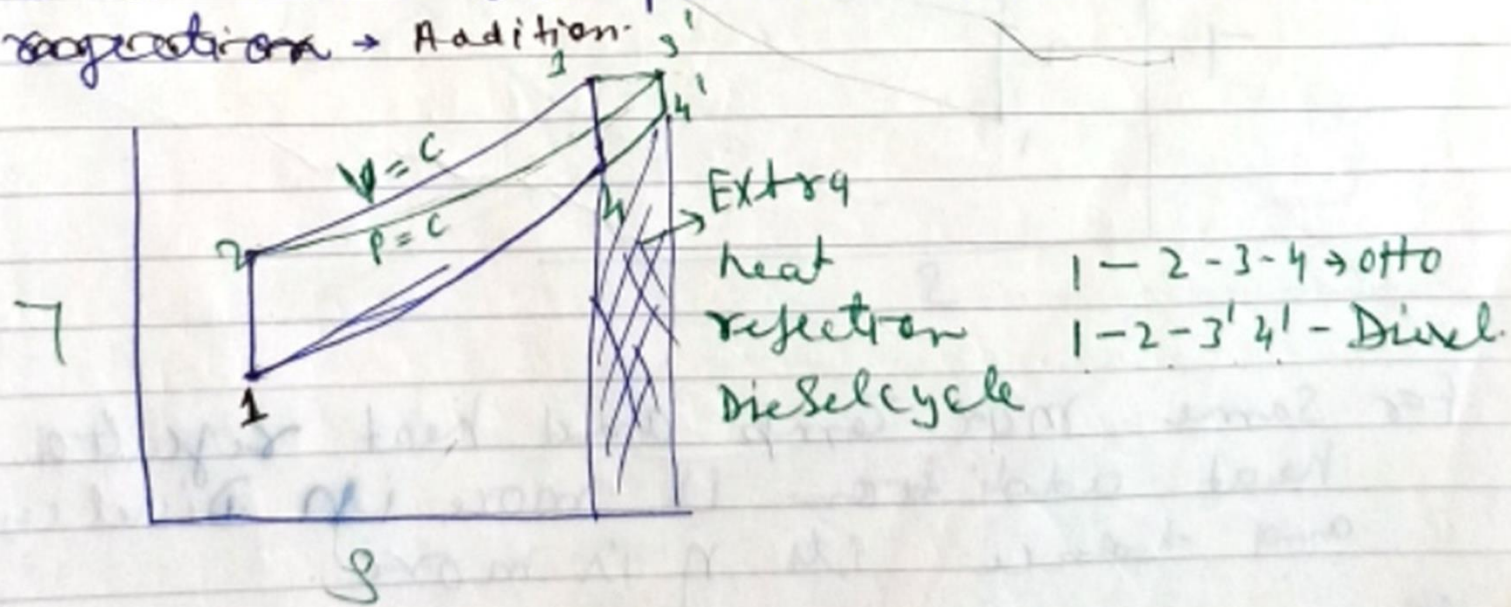 → Addition.
3 3'
4'
V = C
P = C
2
4
1
T
S
Extra
heat
rejection
Diesel cycle
1 - 2 - 3 - 4 → Otto
1 - 2 - 3' 4' - Diesel.